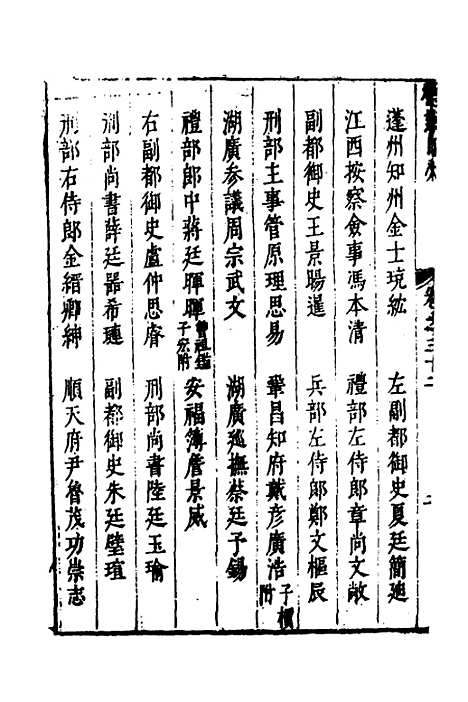 卷之三十二
蓬州知州金士琬紘　左副都御史夏廷簡廸
江西按察僉事馮本清　禮部左侍郎章尚文敞
副都御史王景暘暹　兵部左侍郎鄭文樞辰
刑部主事管原理思易　鞏昌知府戴彥廣浩子櫝附
湖廣參議周宗武文　湖廣巡撫蔡廷予錫
禮部郎中蔣廷暉暉曾祖鑑子宏附　安福簿詹景威
右副都御史盧仲思睿　刑部尚書陸廷玉瑜
刑部尚書薛廷器希璉　副都御史朱廷璧瑄
刑部右侍郎金縉卿紳　順天府尹魯茂功崇志